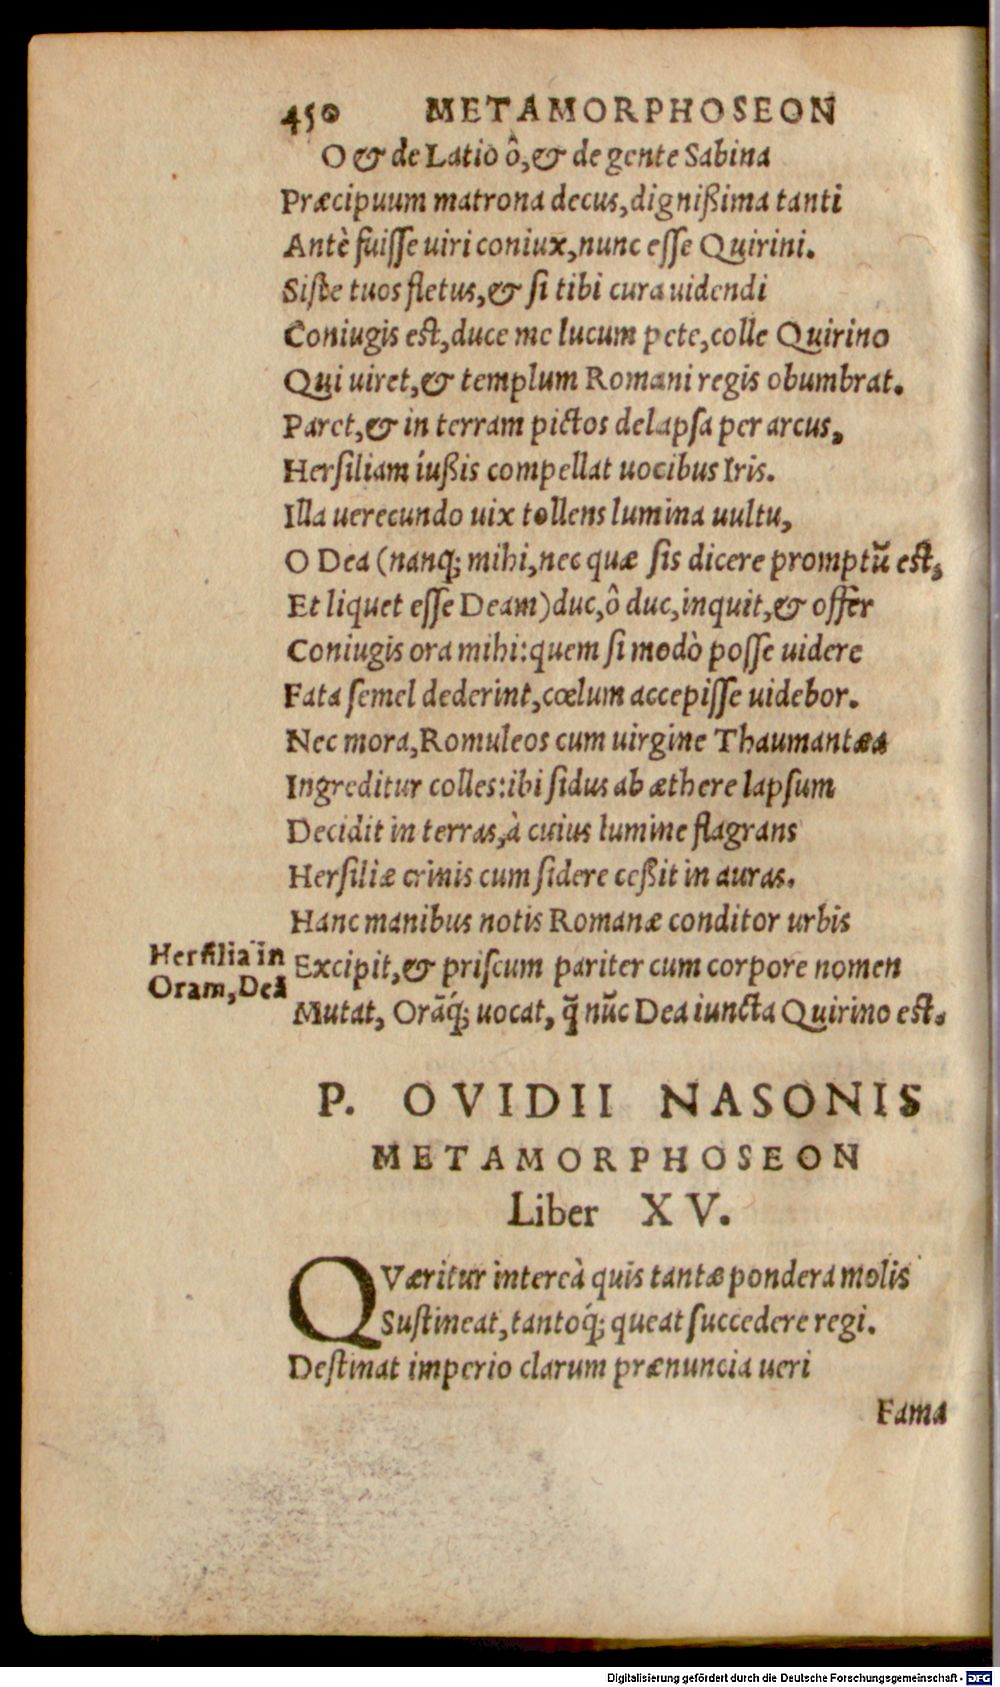 450 METAMORPHOSEON
O & de Latio ô, & de gente Sabina
Præcipuum matrona decus, dignißima tanti
Antè fuiſſe uiri coniux, nunc eſſe Quirini.
Siſte tuos fletus, & ſi tibi cura uidendi
Coniugis eſt, duce me lucum pete, colle Quirino
Qui uiret, & templum Romani regis obumbrat.
Paret, & in terram pictos delapſa per arcus,
Herſiliam iußis compellat uocibus Iris.
Illa uerecundo uix tollens lumina uultu,
O Dea (nanq; mihi, nec quæ ſis dicere promptũ eſt,
Et liquet eſſe Deam) duc, ô duc, inquit, & offer
Coniugis ora mihi: quem ſi modò poſſe uidere
Fata ſemel dederint, cœlum accepiſſe uidebor.
Nec mora, Romuleos cum uirgine Thaumantæa
Ingreditur colles: ibi ſidus ab æthere lapſum
Decidit in terras, à cuius lumine flagrans
Herſiliæ crinis cum ſidere ceßit in auras.
Hanc manibus notis Romanæ conditor urbis
Herſilia in
Oram, Deã
Excipit, & priſcum pariter cum corpore nomen
Mutat, Orãq́; uocat, q̃ nũc Dea iuncta Quirino eſt.
P. OVIDII NASONIS
METAMORPHOSEON
Liber XV.
QVæritur intereà quis tantæ pondera molis
Suſtineat, tantoq́; queat ſuccedere regi.
Deſtinat imperio clarum prænuncia ueri
Fama
Digitalisierung gefördert durch die Deutsche Forschungsgemeinschaft - DFG